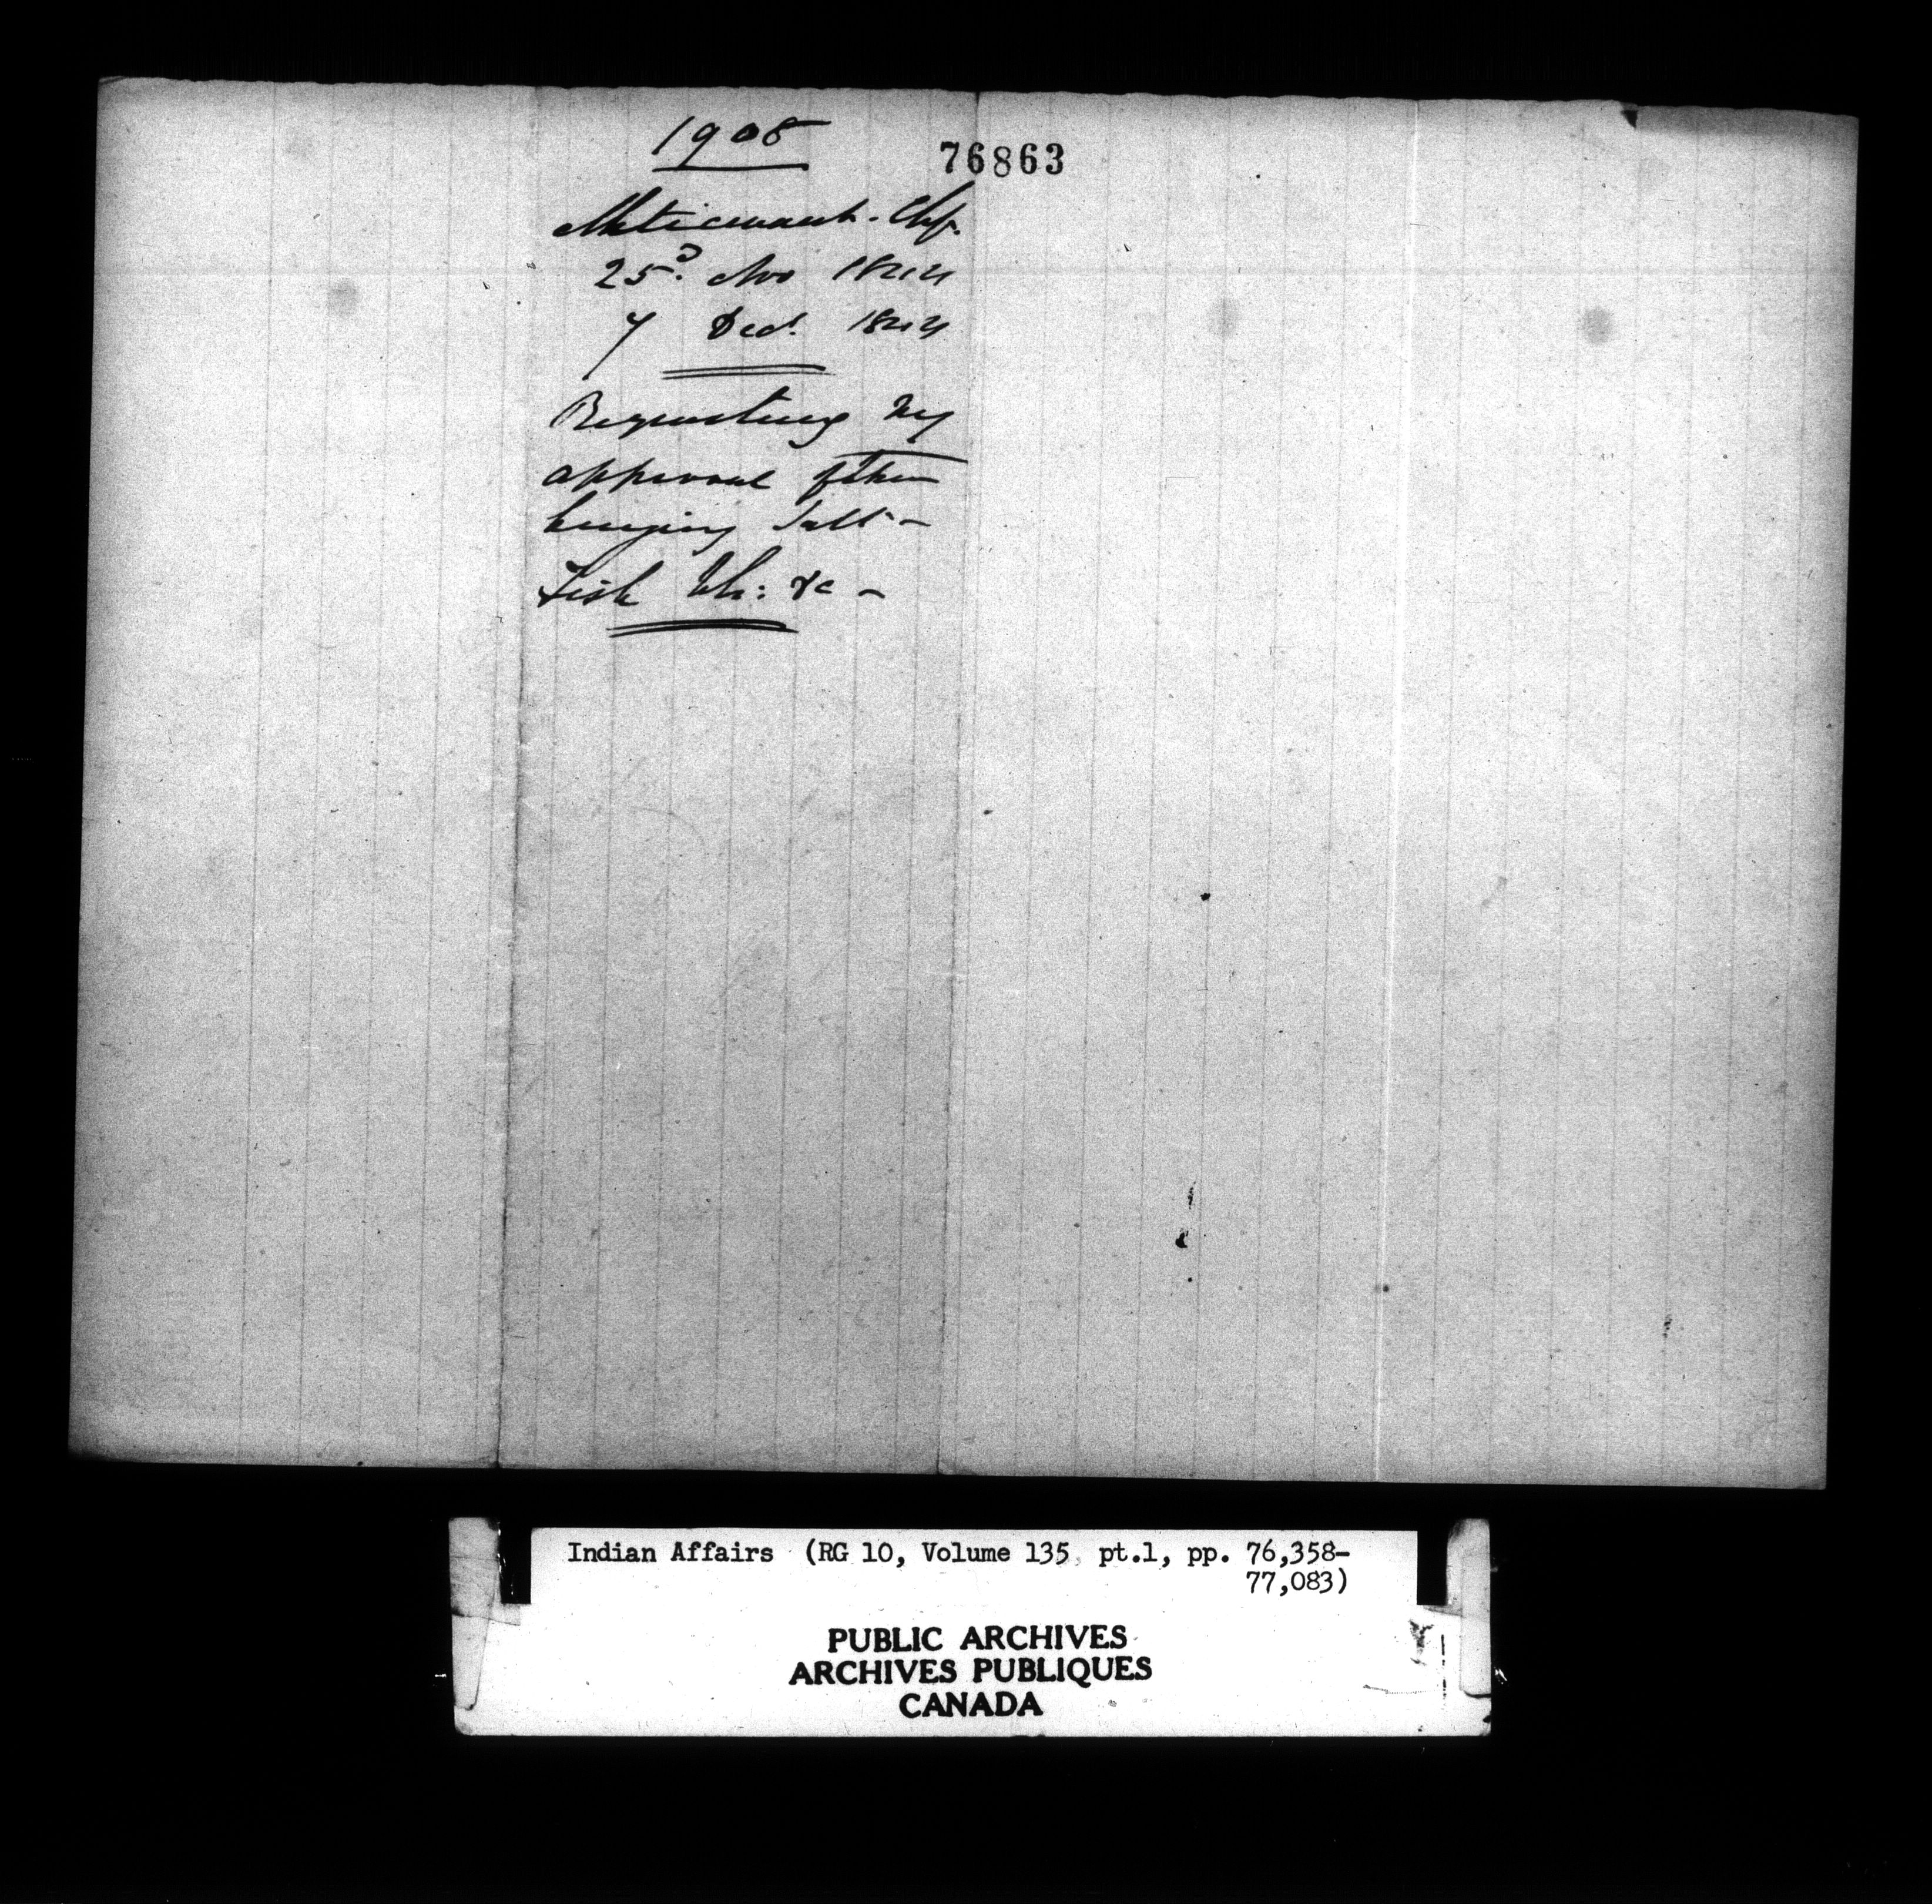 1908
76863
Meticwaub. Chf.
25d. Nov 1844
7 Decr. 1844
Requesting My
approval of their
buying Salt-
Fish Bls: &c -
Indian Affairs (RG 10, Volume 135, pt.1, pp. 76,358-
77,083)
PUBLIC ARCHIVES
ARCHIVES PUBLIQUES
CANADA